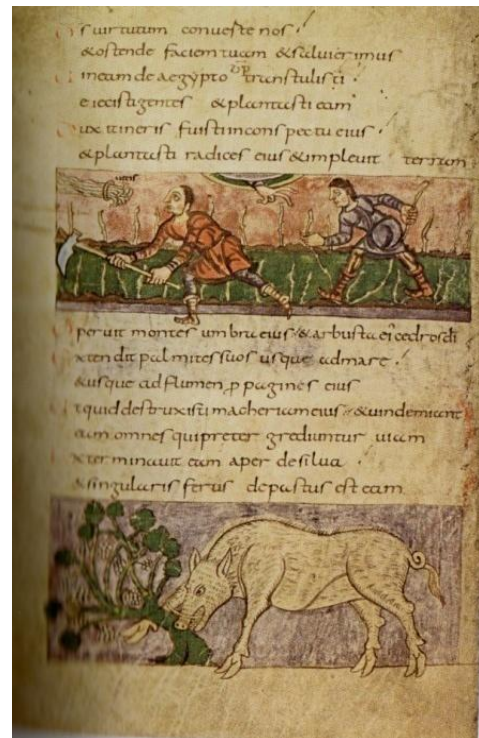 s uirtutum conuerte nos
& ostende faciem tuam & salui erimus
ineam de aegypto transtulisti
eiecisti gentes & plantasti eam
ux itineris fuisti in conspectu eius
& plantasti radices eius & impleuit terram
peruit montes umbra eius & arbusta ei cedros di
xtendit palmites suos usque ad mare
& usque ad flumen ppagines eius
tquid destruxisti macheriam eius & uindemiant
eam omnes qui preter grediuntur uiam
xterminauit eam aper de silua
& singularis ferus depastus est eam